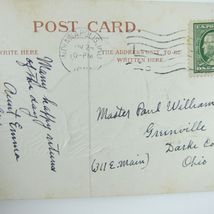 POST CARD.
WRITE HERE
THE ADDRESS ONLY TO BE
WRITTEN HERE
10-PM
Many happy returns
of the day.
Aunt Emma
Master Paul William
Grenville
Darke Co
(211 E. Main)
Ohio